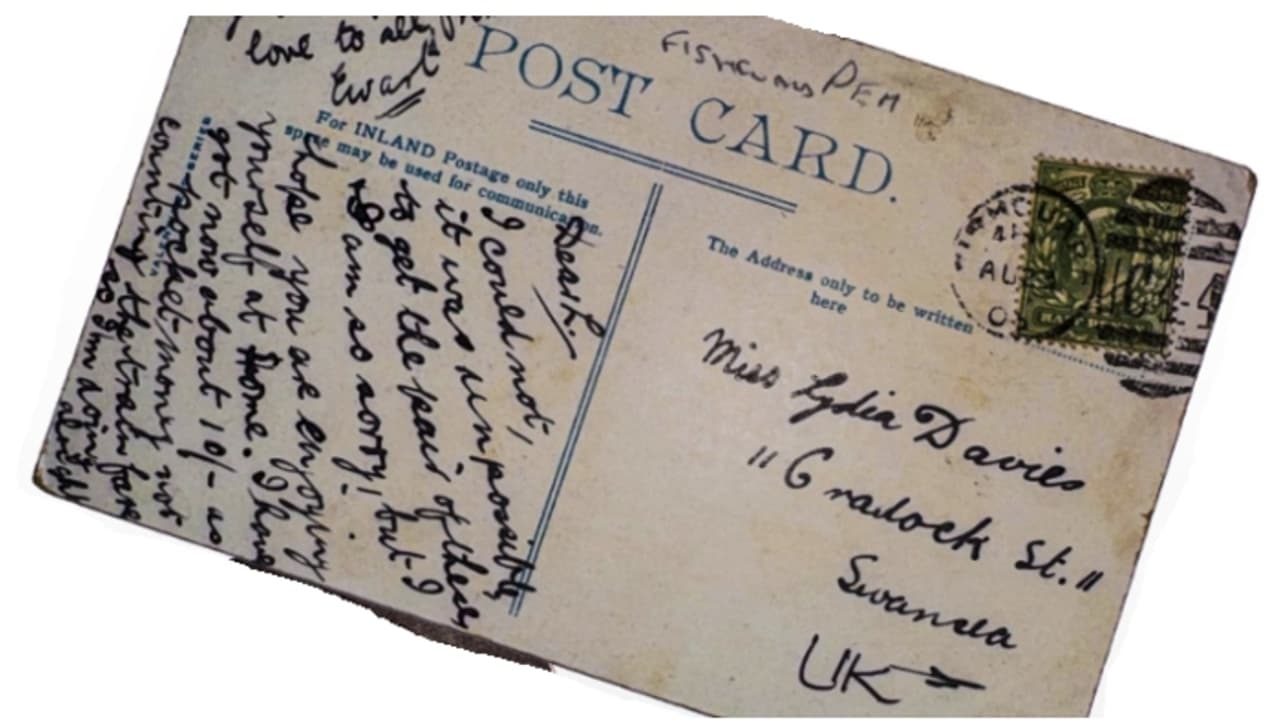 POST CARD.
For INLAND Postage only this
space may be used for communication.
The Address only to be written
here
Miss Lydia Davies
"Cradock St."
Swansea
UK
Dear L.
I could not,
it was unpossible
to get the pair of these
I am so sorry! but I
hope you are enjoying
yourself at Home. I have
got now about 10/- as
pocket-money not
counting the train fare
so I'm doing
alright
love to all
Ewart